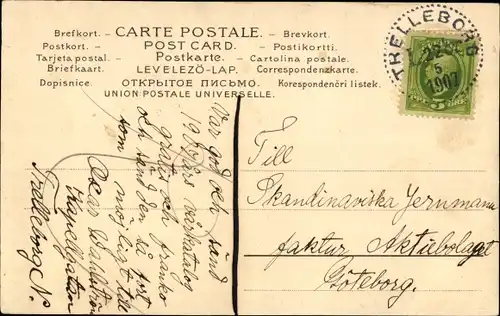 Brefkort. - CARTE POSTALE. - Brevkort.
Postkort. - POST CARD. - Postikortti.
Tarjeta postal. - Postkarte. - Cartolina postale.
Briefkaart. - LEVELEZÖ-LAP. - Correspondenzkarte.
Dopisnice. - ОТКРЫТОЕ ПИСЬМО. - Korespondenčri listek.
UNION POSTALE UNIVERSELLE.
TRELLEBORG
5
1907
5 ÖRE
Var god och sänd
gratis och franko
och sänd den så fort
som möjligt till
Oscar Dahlström
Kapellgatan
Trelleborg N.
Till
Skandinaviska Jernmanu
faktur Aktiebolaget
Göteborg.